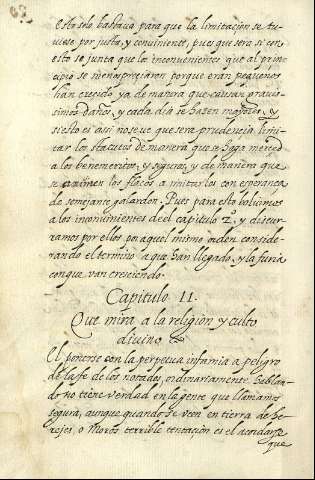 esto solo bastava para que la limitacion se tu-
viese por justa, y conviniente, pues que sera si con
esto se junta que los inconvenientes que al prin-
cipio se menospreciaron porque eran pequeños
han crecido ya de manera que causan gravis-
simos daños, y cada dia se hazen mayores, y
si esto es assi no se ve que sera prudencia limi-
tar los statutos de manera que se haga merced
a los benemeritos, y seguros, y de manera que
se animen los flacos a imitarlos con esperança
de semejante galardon. Pues para esto bolvamos
a los inconvinientes del capitulo 2º. y discur-
ramos por ellos por aquel mismo orden conside-
rando el termino a que han llegado, y la furia
con que van creciendo.
Capitulo 11.
Que mira a la religion y culto
divino
El ponerse con la perpetua infamia a peligro
de la fe de los notados, ordinariamente hablan-
do no tiene verdad en la gente que llamamos
segura, aunque quando se veen en tierra de he-
rejes, o Moros terrible tentacion es el acordarse
que